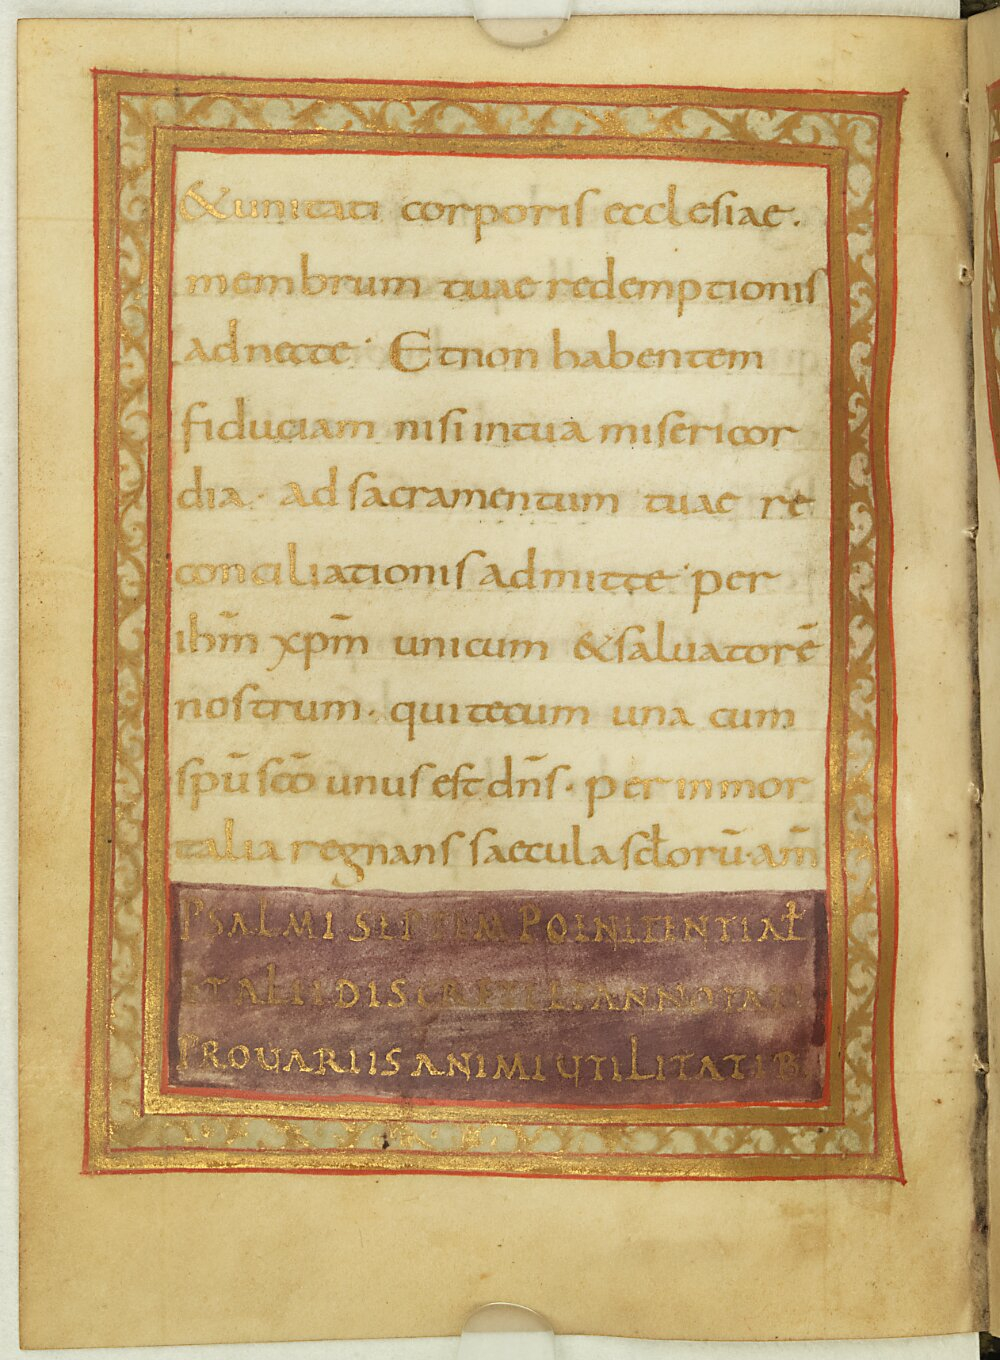 & unitati corporis ecclesiae.
membrum tuae redemptionis
adnecte · Et non habentem
fiduciam nisi in tua misericor
dia · ad sacramentum tuae re
conciliationis admitte · per
ihm̄ xpm̄ unicum & saluatorē
nostrum · qui tecum una cum
spū scō unus est dn̄s · per inmor
talia regnans saecula sclorū · am̄
PSALMI SEPTEM POENITENTIAL
DISCRETI ET ANNOTATI
PRO UARIIS ANIMI UTILITATIB